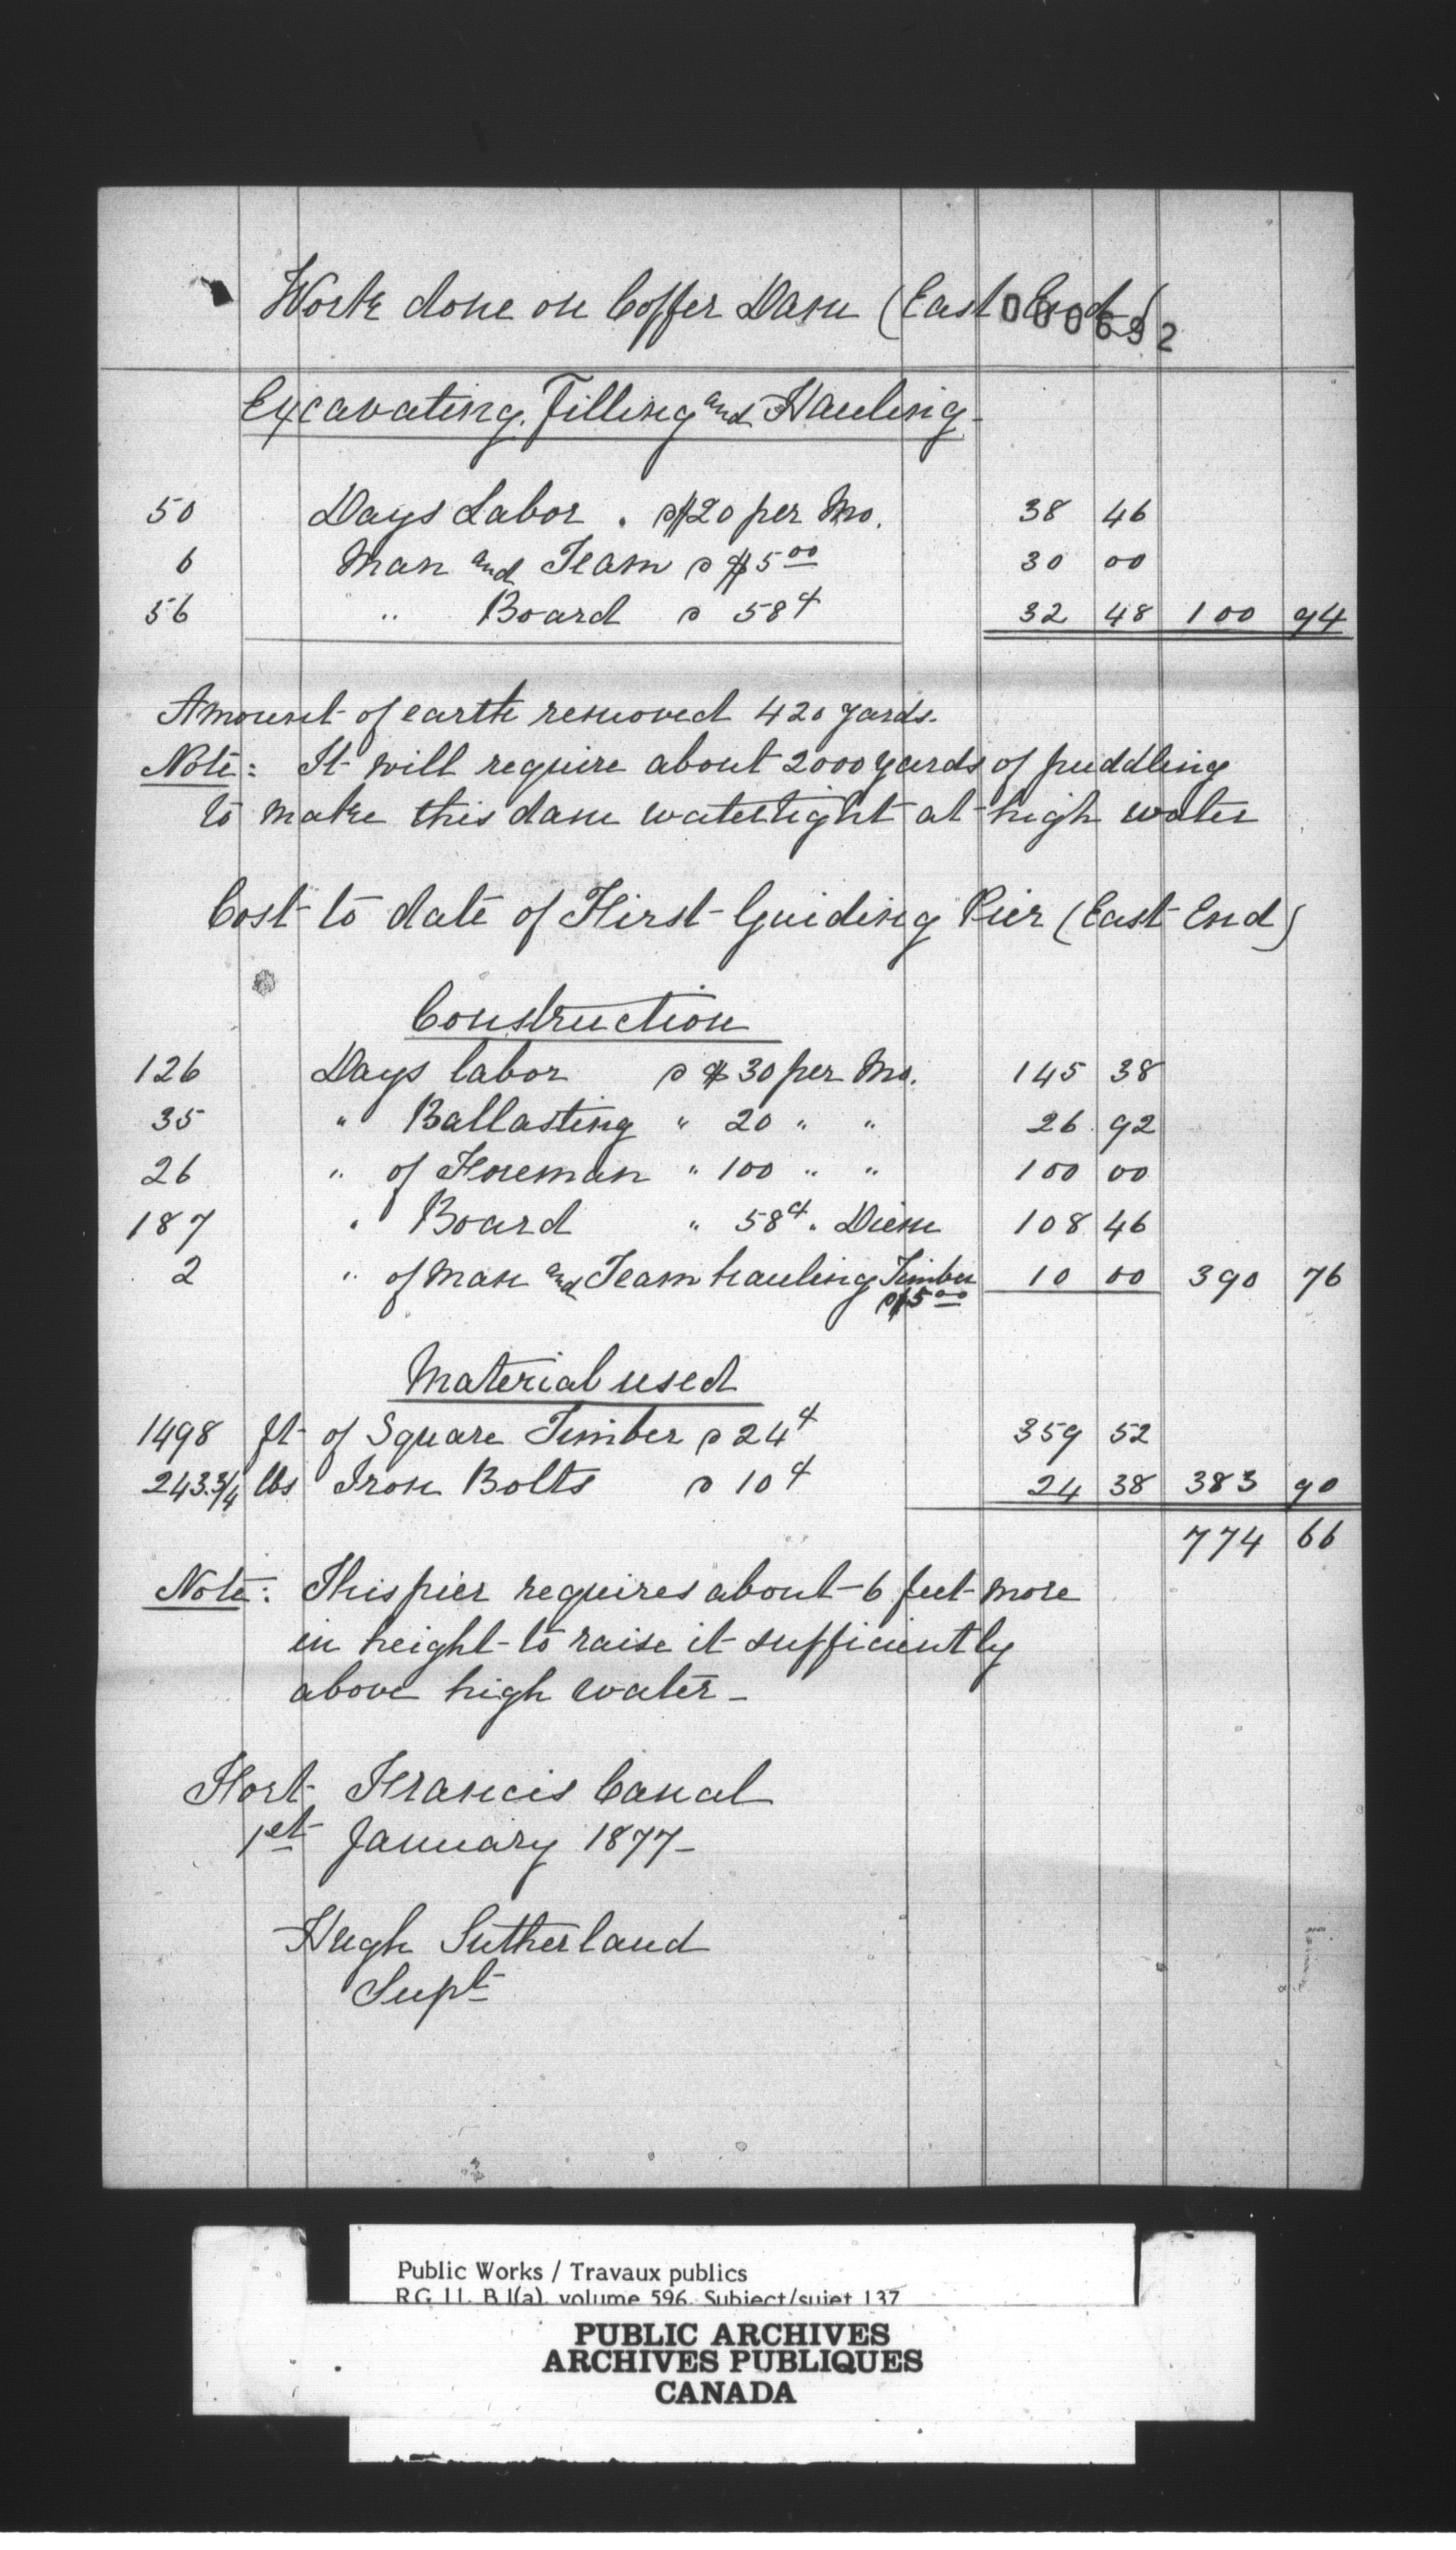 Work done on Coffer Dam (East End)
000692
Excavating, Filling and Hauling
50 Days Labor . @ $20 per Mo. 38 46
6 Man and Team @ $5 00 30 00
56 " Board @ 58¢ 32 48 100 94
Amount of earth removed 420 yards.
Note: It will require about 2000 yards of puddling
to make this dam watertight at high water
Cost to date of First Guiding Pier (East End)
Construction
126 Days labor @ $30 per Mo. 145 38
35 " Ballasting " 20 " " 26 92
26 " of Foreman " 100 " " 100 00
187 " Board " 58¢ " Diem 108 46
2 " of Man and Team hauling Timber @ $5 00 10 00 390 76
Material used
1498 ft of Square Timber @ 24¢ 359 52
243 3/4 lbs Iron Bolts @ 10¢ 24 38 383 90
774 66
Note: This pier requires about 6 feet more
in height to raise it sufficiently
above high water -
Fort Francis Canal
1st January 1877 -
Hugh Sutherland
Supt
Public Works / Travaux publics
RG 11, B 1(a), volume 596, Subject/sujet 137
PUBLIC ARCHIVES
ARCHIVES PUBLIQUES
CANADA